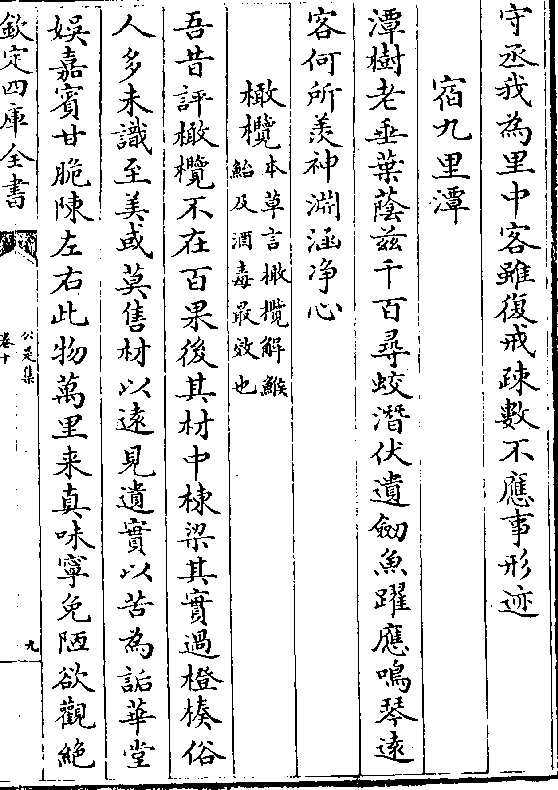 守丞我為里中客雖復戒疎數不應事形迹
宿九里潭
潭樹老垂葉蔭兹千百尋蛟潛伏遺劒魚躍應鳴琴遠
客何所羨神淵涵净心
橄欖本草言橄欖解鯸
鮐及酒毒最效也
吾昔評橄欖不在百果後其材中棟梁其實過橙楱俗
人多未識至美或莫售材以遠見遺實以苦為詬華堂
娛嘉賓甘脆陳左右此物萬里来真味寧免陋欲觀絶
欽定四庫全書
公是集
卷十
九